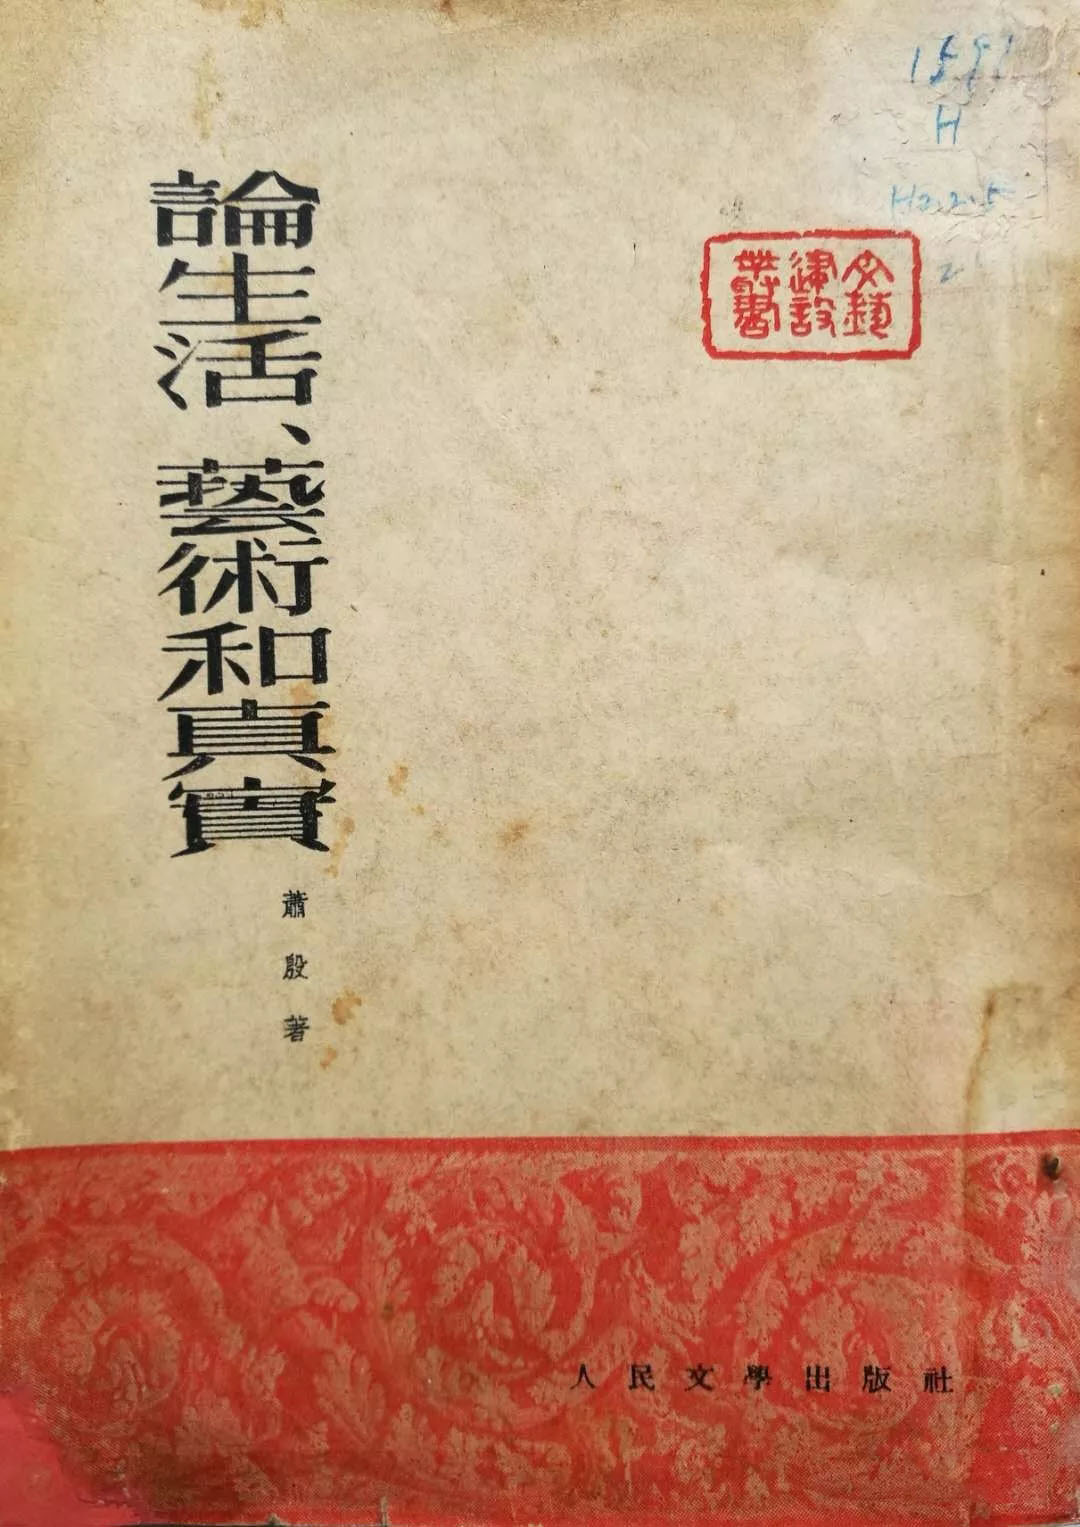 論生活、藝術和真實
蕭殷著
文藝
建設
叢書
人民文學出版社
H